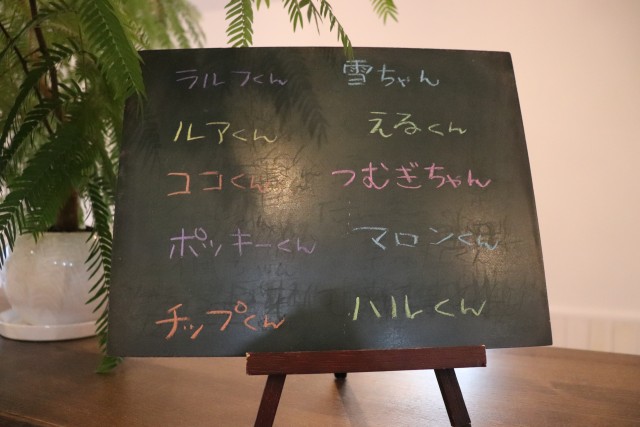 ラルフくん 雪ちゃん
ルアくん えるくん
ココくん つむぎちゃん
ポッキーくん マロンくん
チップくん ハルくん